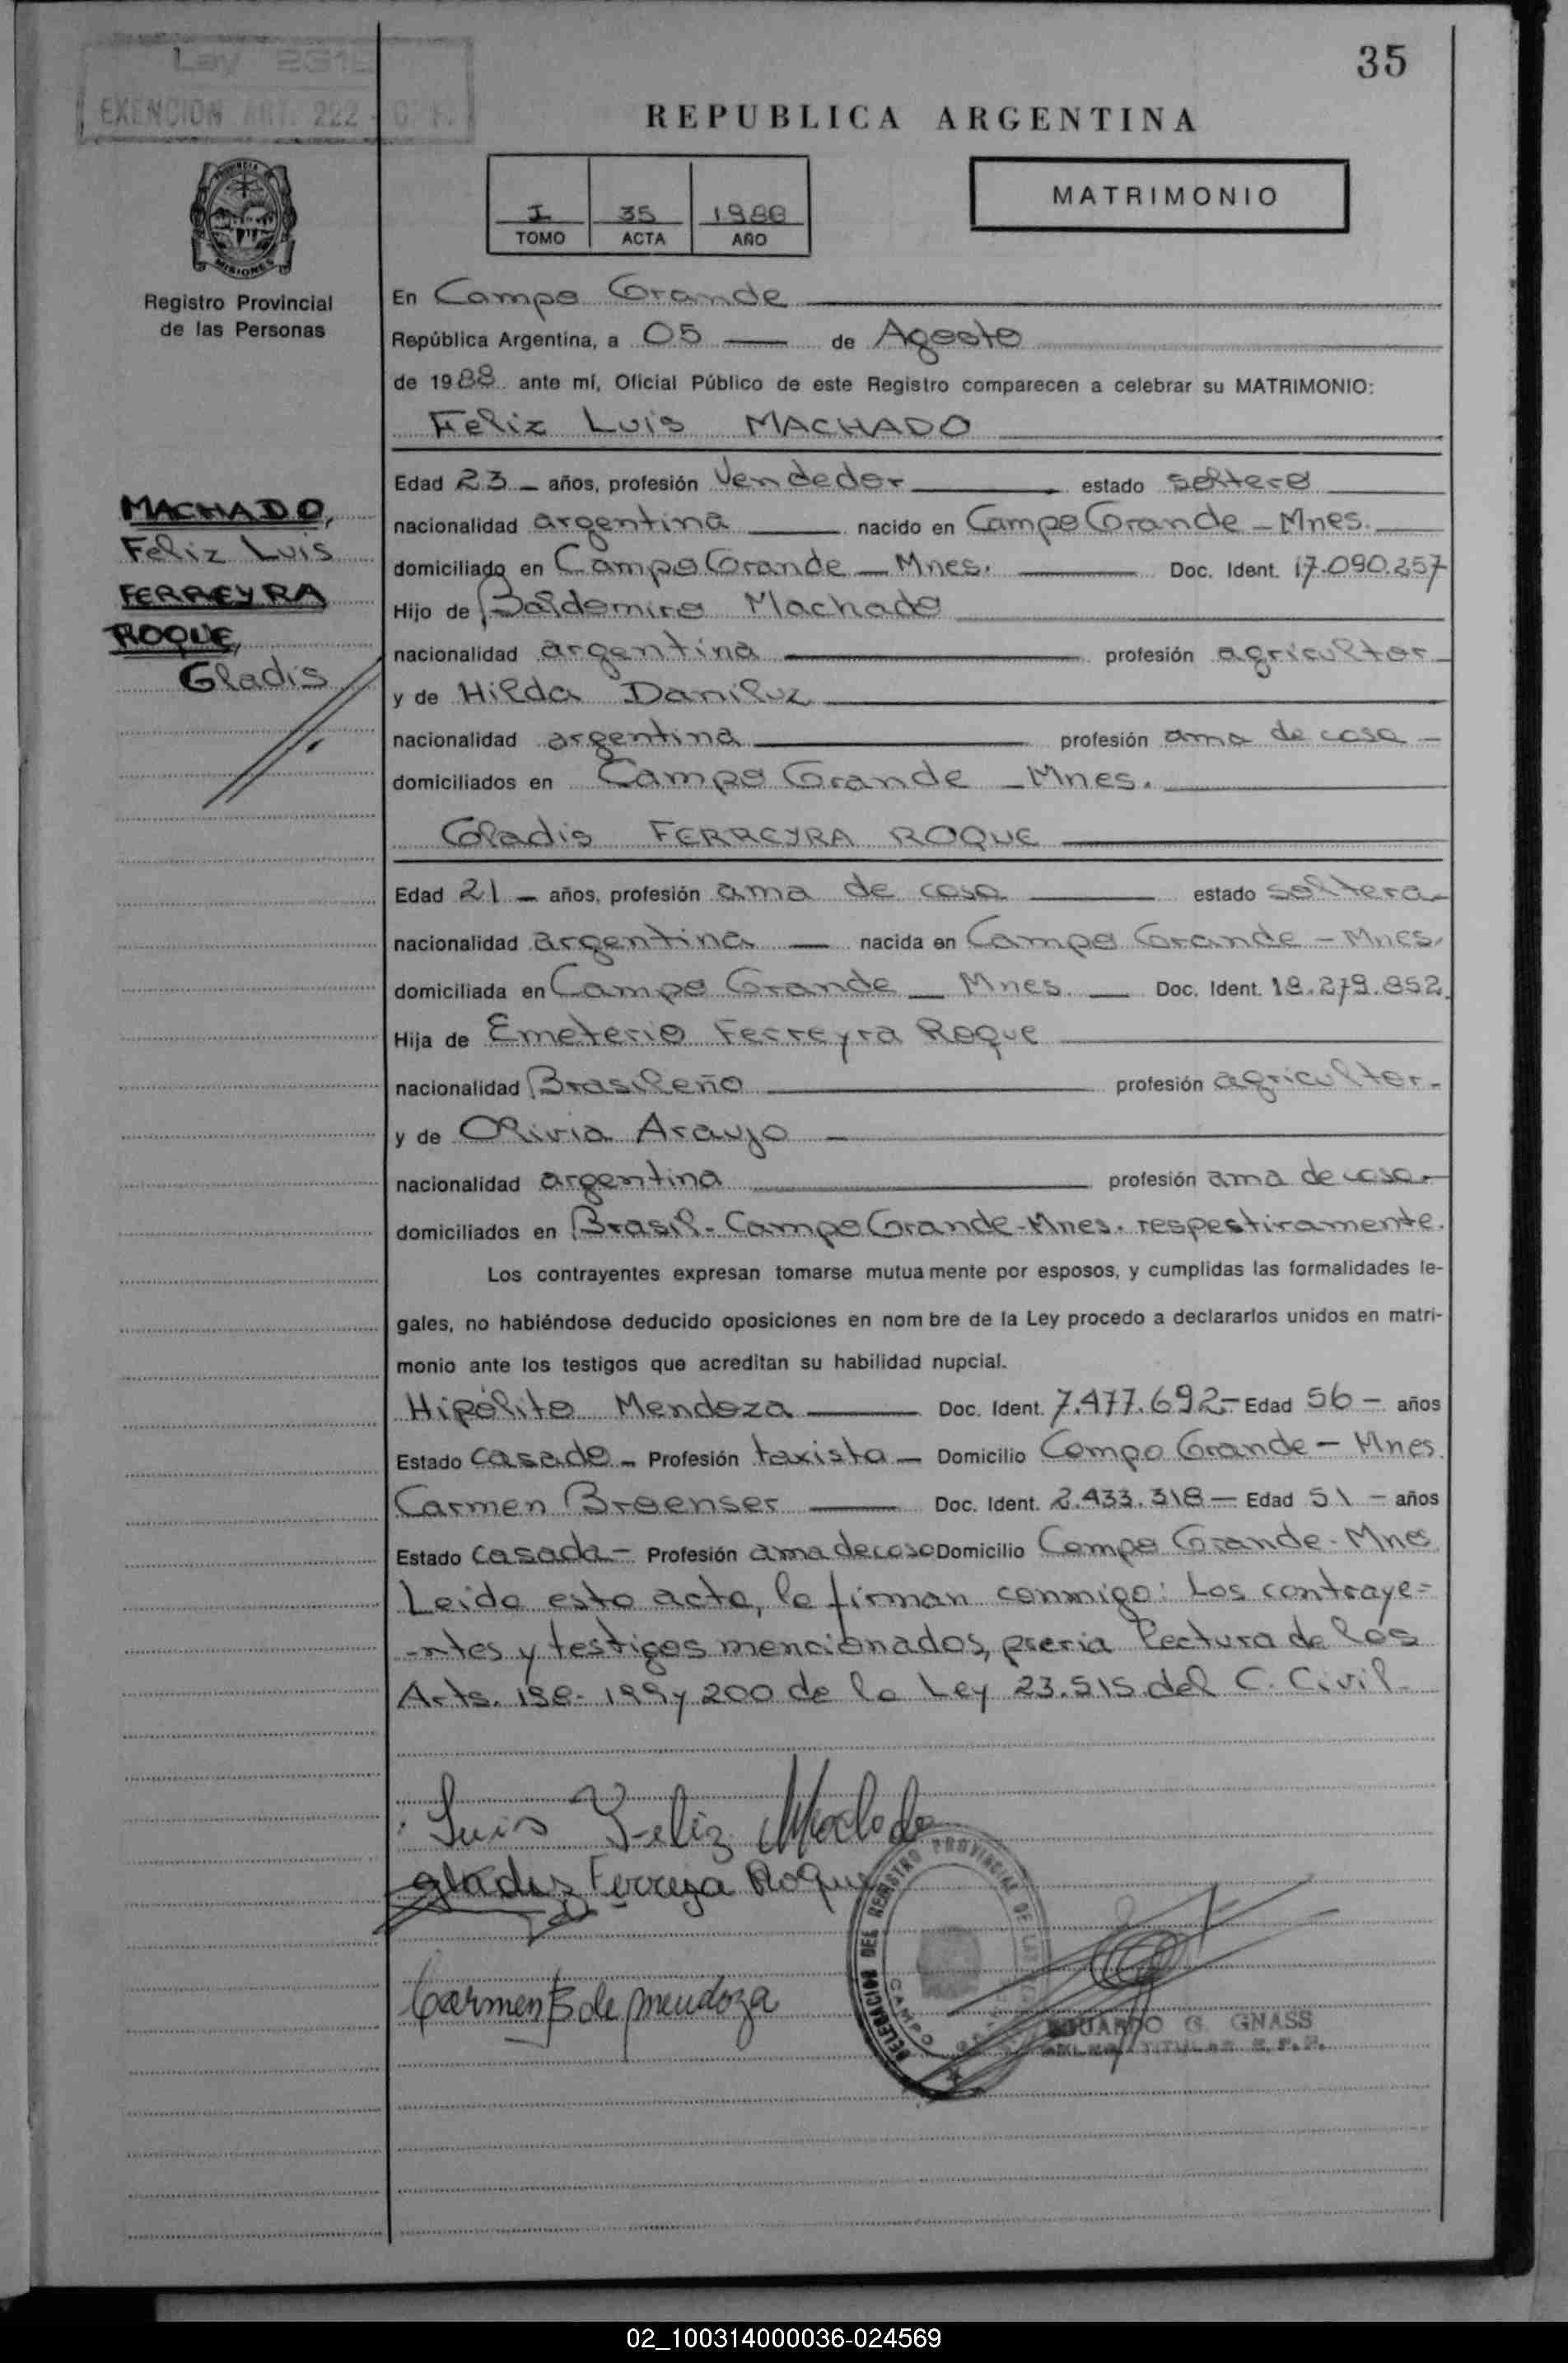 35
EXENCION ART. 222
REPUBLICA ARGENTINA
MATRIMONIO
I 35 1988
TOMO ACTA AÑO
PROVINCIA DE
MISIONES
Registro Provincial
de las Personas
En Campo Grande
República Argentina, a 05 de Agosto
de 1988 ante mí, Oficial Público de este Registro comparecen a celebrar su MATRIMONIO:
Feliz Luis MACHADO
MACHADO,
Feliz Luis
FERREYRA
ROQUE,
Gladis
Edad 23 - años, profesión Vendedor estado soltero
nacionalidad argentina nacido en Campo Grande - Mnes.
domiciliado en Campo Grande - Mnes. Doc. Ident. 17.090.257
Hijo de Baldomiro Machado
nacionalidad argentina profesión agricultor
y de Hilda Daniluz
nacionalidad argentina profesión ama de casa -
domiciliados en Campo Grande - Mnes.
Gladis FERREYRA ROQUE
Edad 21 - años, profesión ama de casa estado soltera
nacionalidad argentina - nacida en Campo Grande - Mnes.
domiciliada en Campo Grande - Mnes. - Doc. Ident. 18.279.852
Hija de Emeterio Ferreyra Roque
nacionalidad Brasileño profesión agricultor -
y de Olivia Araujo -
nacionalidad argentina profesión ama de casa -
domiciliados en Brasil - Campo Grande - Mnes. respestivamente.
Los contrayentes expresan tomarse mutua mente por esposos, y cumplidas las formalidades le-
gales, no habiéndose deducido oposiciones en nom bre de la Ley procedo a declararlos unidos en matri-
monio ante los testigos que acreditan su habilidad nupcial.
Hipólito Mendoza Doc. Ident. 7.477.692- Edad 56 - años
Estado casado - Profesión taxista - Domicilio Campo Grande - Mnes.
Carmen Broenser Doc. Ident. 2.433.318 - Edad 51 - años
Estado casada - Profesión ama de casa Domicilio Campo Grande - Mnes
Leida esta acta, la firman conmigo: Los contraye=
-ntes y testigos mencionados, previa lectura de los
Arts. 198- 199 y 200 de la Ley 23.515 del C. Civil.
Luis Feliz Machado
Gladis Ferreyra Roque
Carmen B de Mendoza
DELEGACION DEL REGISTRO PROVINCIAL DE LAS
CAMPO
EDUARDO G. GNASS
TITULAR
02_100314000036-024569